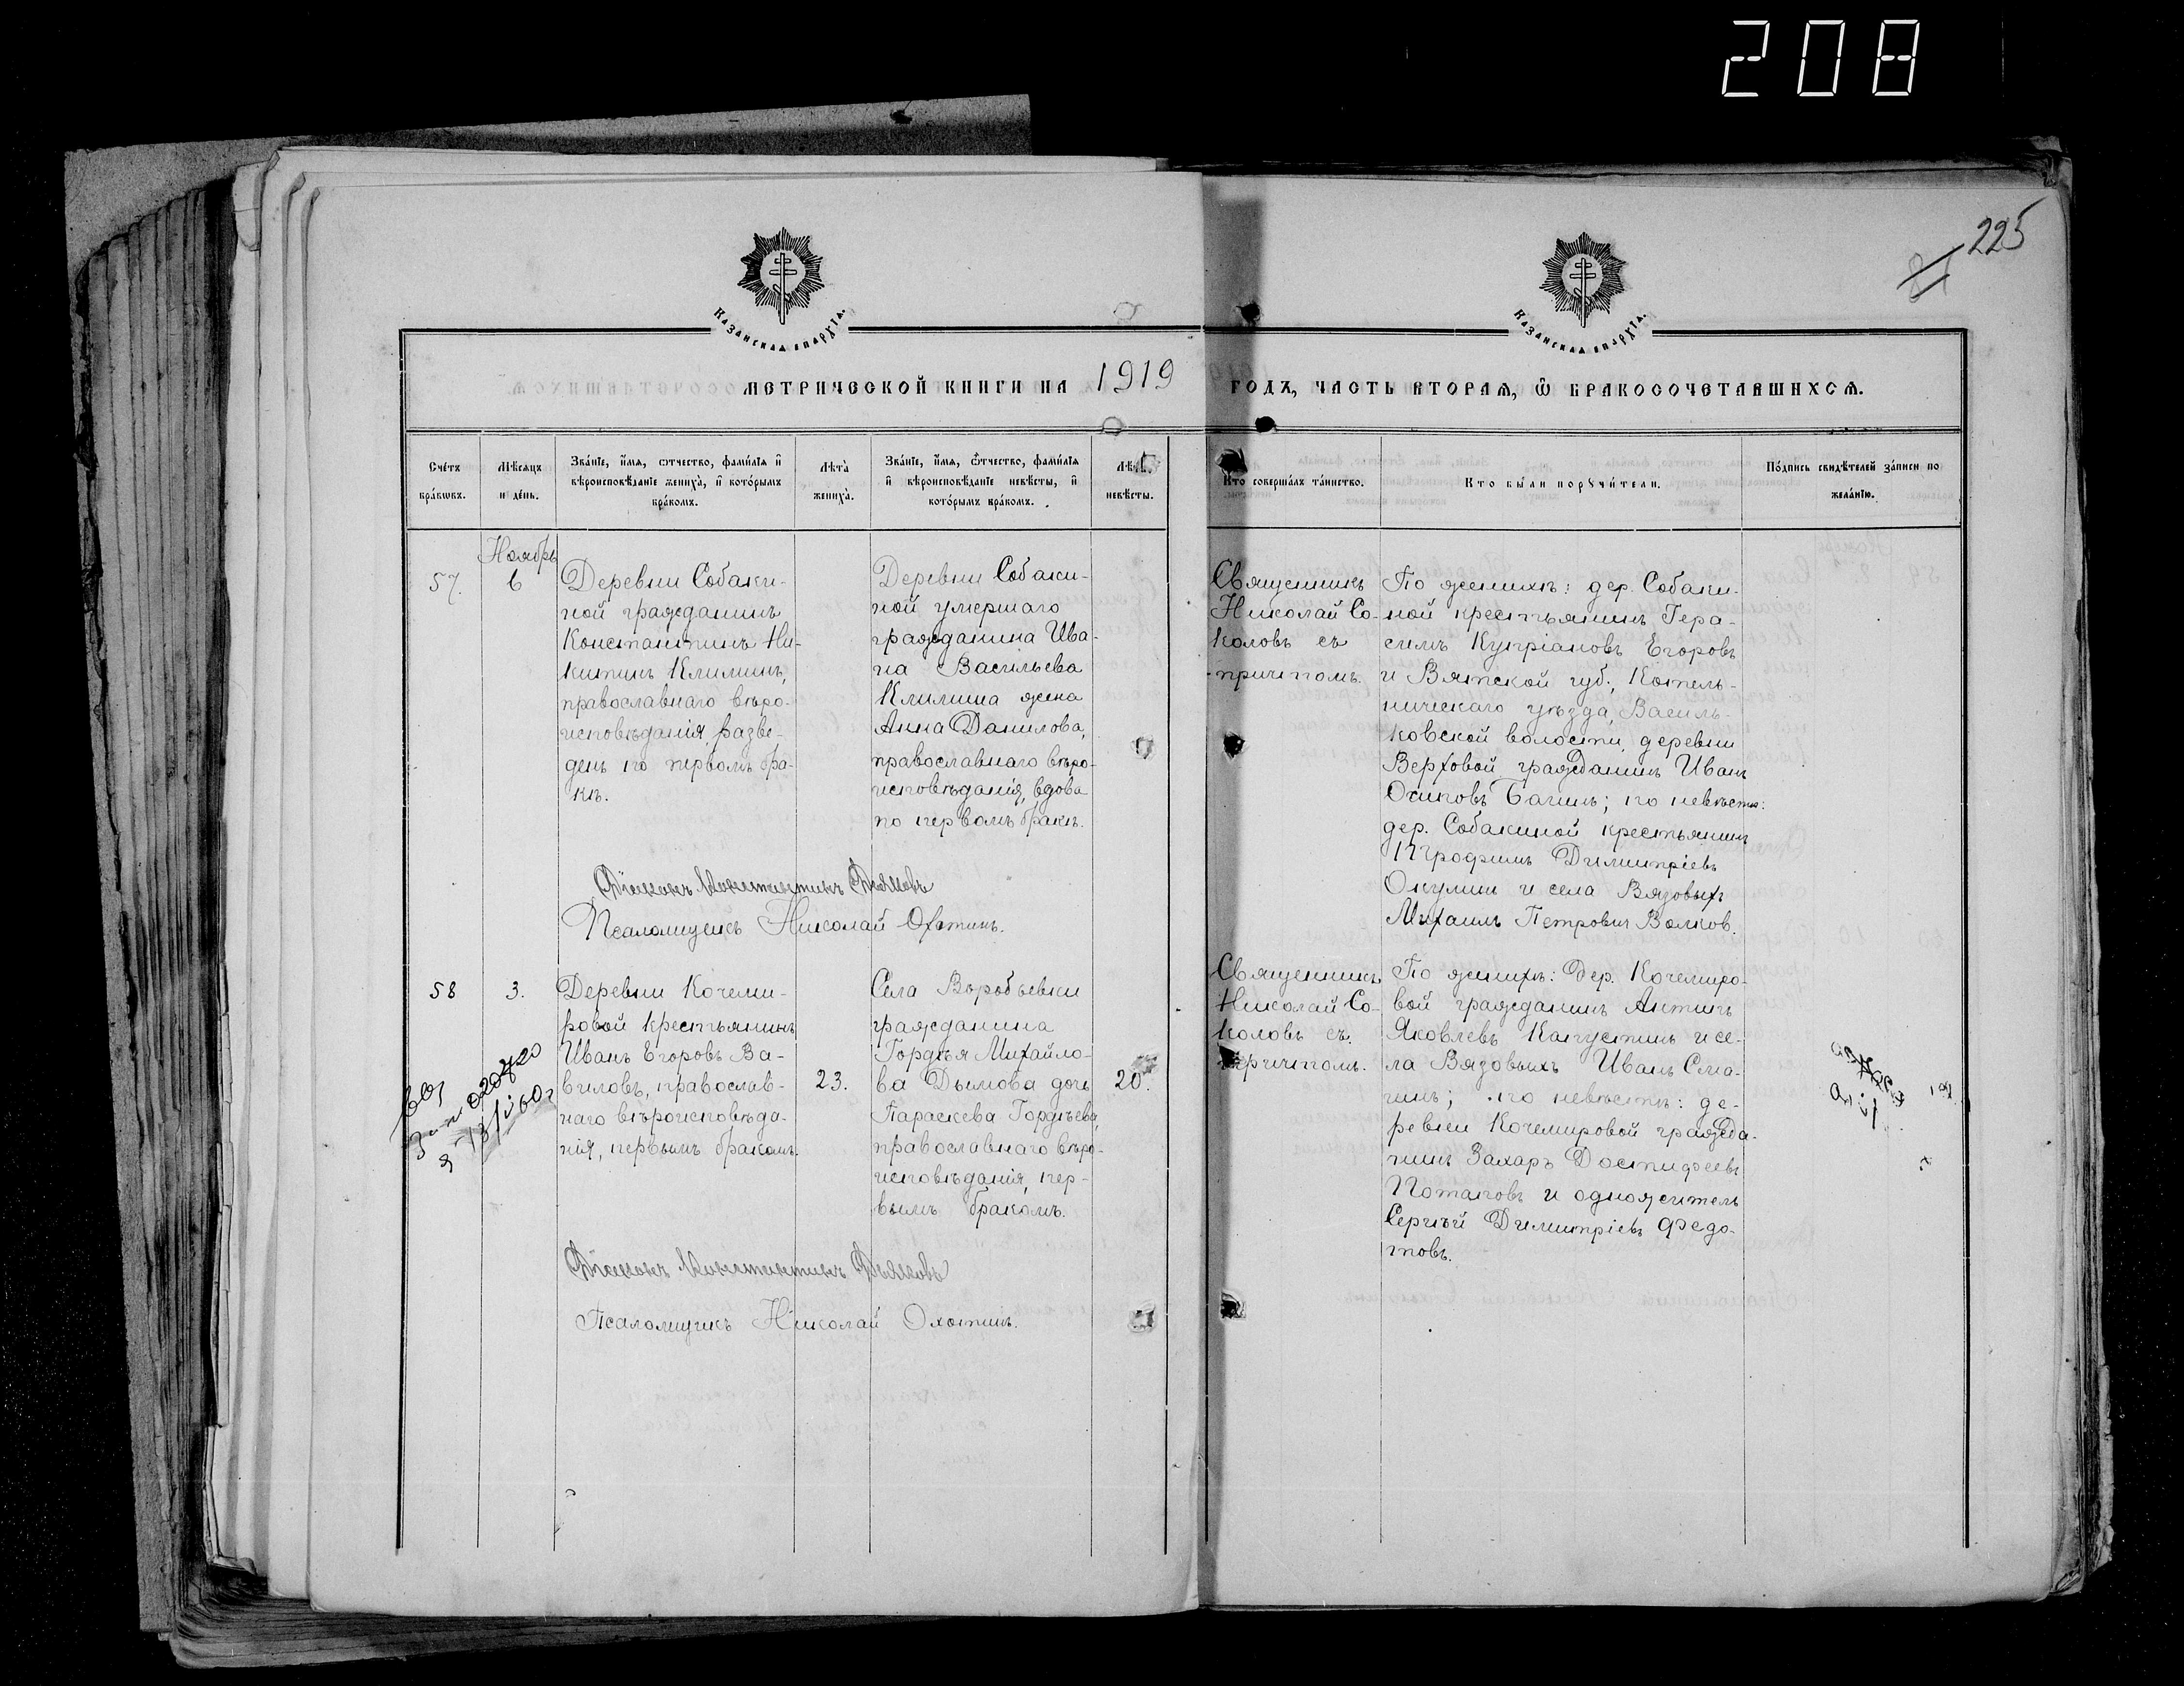 208
225
КАЗАНСКАѦ ЕПАРХІА.
КАЗАНСКАѦ ЕПАРХІА.
МЕТРИЧЕСКОЙ КНИГИ НА 1919 ГОДЪ, ЧАСТЬ ВТОРАЯ, Ѽ БРАКОСОЧЕТАВШИХСЯ.
Счетъ браковъ.
Мѣсяцъ и день.
Званіе, имя, отчество, фамилія и
вѣроисповѣданіе жениха, и которымъ
бракомъ.
Лѣта
жениха.
Званіе, имя, отчество, фамилія
и вѣроисповѣданіе невѣсты, и
которымъ бракомъ.
Лѣта
невѣсты.
Кто совершалъ таинство.
Кто были порꙋчители.
Подпись свидѣтелей записи по
желанію.
Ноябрь
57.
6
Деревни Собаки-
ной гражданинъ
Константинъ Ни-
китинъ Климинъ,
православнаго вѣро-
исповѣданія, разве-
денъ по первомъ бра-
кѣ.
Деревни Собаки-
ной умершаго
гражданина Ива-
на Васильева
Климина жена
Анна Данилова,
православнаго вѣро-
исповѣданія, вдова
по первомъ бракѣ.
Священникъ
Николай Со-
коловъ съ
причтомъ.
По женихѣ: дер. Собаки-
ной крестьянинъ Гера-
симъ Купріановъ Егоровъ
и Вятской губ., Котель-
ническаго уѣзда, Василь-
ковской волости, деревни
Верховой гражданинъ Иванъ
Осиповъ Багинъ; по невѣстѣ:
дер. Собакиной крестьянинъ
Димитріевъ
Окулин и села Вязовыхъ
Михаилъ Петрович Волков.
Діаконъ Константинъ Дьяковъ
Псаломщикъ Николай Охотинъ.
58
3.
Деревни Кочеми-
ровой крестьянинъ
Иванъ Егоровъ Ва-
виловъ, православ-
наго вѣроисповѣда-
нія, первымъ бракомъ.
23.
Села Воробьевки
гражданина
Гордѣя Михайло-
ва Дымова дочь
Параскева Гордѣева,
православнаго вѣро-
исповѣданія, пер-
вымъ бракомъ.
20.
Священникъ
Николай Со-
коловъ съ
причтомъ.
По женихѣ: дер. Кочемиро-
вой гражданинъ Антипъ
Яковлевъ Капустинъ и се-
ла Вязовыхъ Иванъ Сма-
гинъ; по невѣстѣ: де-
ревни Кочемировой гражда-
нинъ Захаръ Достифеевъ
Потаповъ и одножитель
Сергѣй Димитріевъ Федо-
товъ.
Діаконъ Константинъ Дьяковъ
Псаломщикъ Николай Охотинъ.